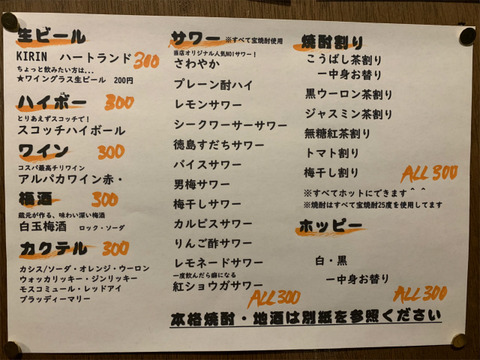 生ビール
KIRIN ハートランド 300
ちょっと飲みたい方は...
★ワイングラス生ビール 200円
ハイボー 300
とりあえずスコッチで!
スコッチハイボール
ワイン 300
コスパ最高チリワイン
アルパカワイン赤・
梅酒 300
蔵元が作る、味わい深い梅酒
白玉梅酒 ロック・ソーダ
カクテル 300
カシス/ソーダ・オレンジ・ウーロン
ウォッカリッキー・ジンリッキー
モスコミュール・レッドアイ
ブラッディーマリー
サワー ※すべて宝焼酎使用
当店オリジナル人気NO1サワー!
さわやか
プレーン酎ハイ
レモンサワー
シークワーサーサワー
徳島すだちサワー
バイスサワー
男梅サワー
梅干しサワー
カルピスサワー
りんご酢サワー
レモネードサワー
一度飲んだら癖になる
紅ショウガサワー
ALL300
焼酎割り
こうばし茶割り
ー中身お替り
黒ウーロン茶割り
ジャスミン茶割り
無糖紅茶割り
トマト割り
梅干し割り
ALL300
※すべてホットにできます^ ^
※焼酎はすべて宝焼酎25度を使用してます
ホッピー
白・黒
ー中身お替り
ALL300
本格焼酎・地酒は別紙を参照ください